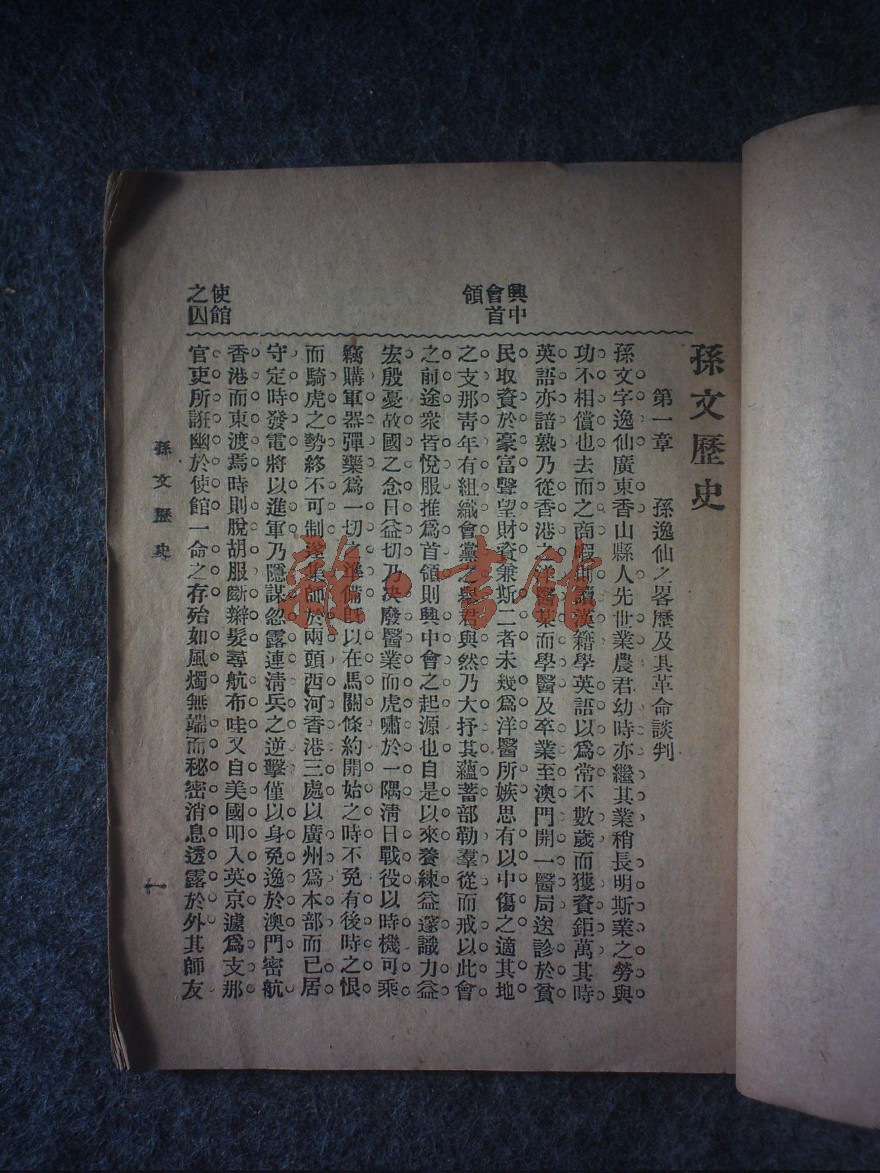 孫文歷史
第一章　孫逸仙之畧歷及其革命談判
孫文字逸仙廣東香山縣人先世業農君幼時亦繼其業稍長明斯業之勞與
功不相償也去而之商暇則讀漢籍學英語以爲常不數歲而獲資鉅萬其時
英語亦諳熟乃從香港之洋醫某而學醫及卒業至澳門開一醫局送診於貧
民取資於豪富聲望財資兼斯二者未幾爲洋醫所嫉思有以中傷之適其地
之支那靑年有組織會黨之舉君與然乃大抒其蘊蓄部勒羣從而戒以此會
之前途衆皆悅服推爲首領則興中會之起源也自是以來養練益邃識力益
宏殷憂故國之念日益切乃決廢醫業而虎嘯於一隅淸日戰役以時機可乘
竊購軍器彈藥爲一切之準備旣以在馬關條約開始之時不免有後時之恨
而騎虎之勢終不可制遂集師於兩頭西河香港三處以廣州爲本部而已居
守定時發電將以進軍乃隱謀忽露連淸兵之逆擊僅以身免逸於澳門密航
香港而東渡焉時則脫胡服斷辮髮尋航布哇又自美國叩入英京遽爲支那
官吏所誑幽於使館一命之存殆如風燭無端而秘密消息透露於外其師友
興中
會首
領
使館
之囚
孫文歷史
一
雜·書館